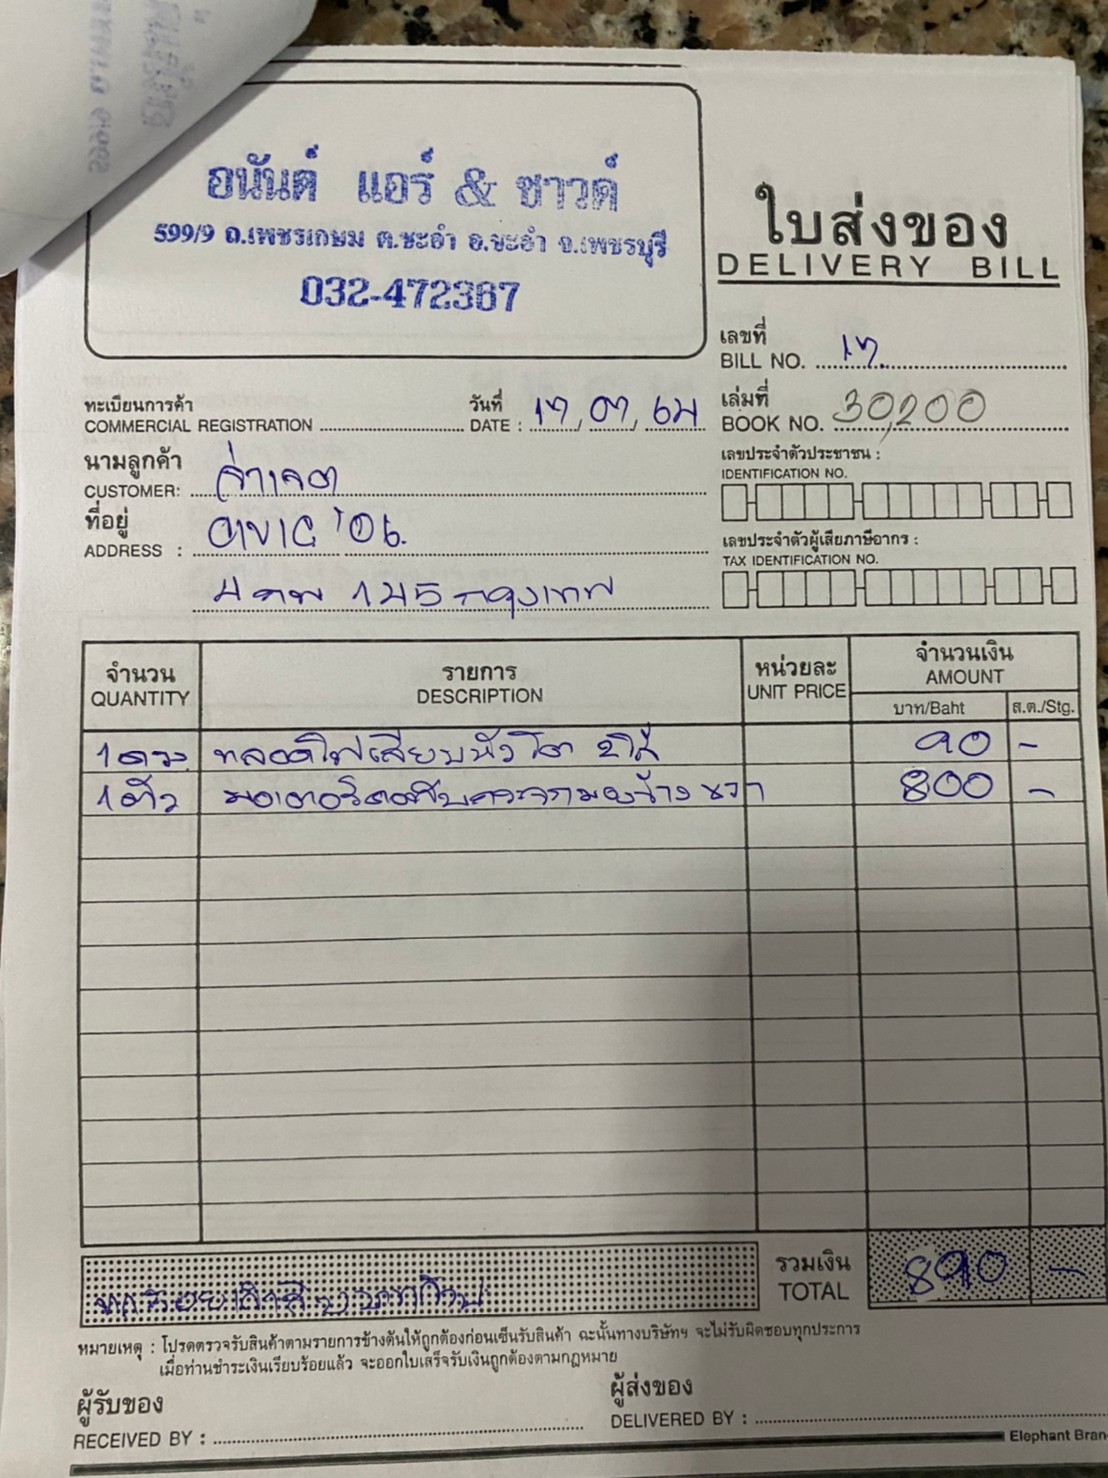 อนันต์ แอร์ & ซาวด์
599/9 ถ.เพชรเกษม ต.ชะอำ อ.ชะอำ จ.เพชรบุรี
032-472367
ใบส่งของ
DELIVERY BILL
เลขที่
BILL NO. 17.
ทะเบียนการค้า
COMMERCIAL REGISTRATION
วันที่
DATE : 17, 07, 64
เล่มที่
BOOK NO. 30,200
นามลูกค้า
CUSTOMER: จ่าเจต
ที่อยู่
ADDRESS : CIVIC '06.
4 กพ 145 กรุงเทพ
เลขประจำตัวประชาชน :
IDENTIFICATION NO.
เลขประจำตัวผู้เสียภาษีอากร :
TAX IDENTIFICATION NO.
จำนวน
QUANTITY
รายการ
DESCRIPTION
หน่วยละ
UNIT PRICE
จำนวนเงิน
AMOUNT
บาท/Baht
ส.ต./Stg.
1 ดวง หลอดไฟเสียบหัวโต 90 -
1 ตัว มอเตอร์ กระจกมองข้าง ขวา 800 -
รวมเงิน
TOTAL 890 -
หมายเหตุ : โปรดตรวจรับสินค้าตามรายการข้างต้นให้ถูกต้องก่อนเซ็นรับสินค้า ฉะนั้นทางบริษัทฯ จะไม่รับผิดชอบทุกประการ
เมื่อท่านชำระเงินเรียบร้อยแล้ว จะออกใบเสร็จรับเงินถูกต้องตามกฎหมาย
ผู้รับของ
RECEIVED BY :
ผู้ส่งของ
DELIVERED BY :
Elephant Bran